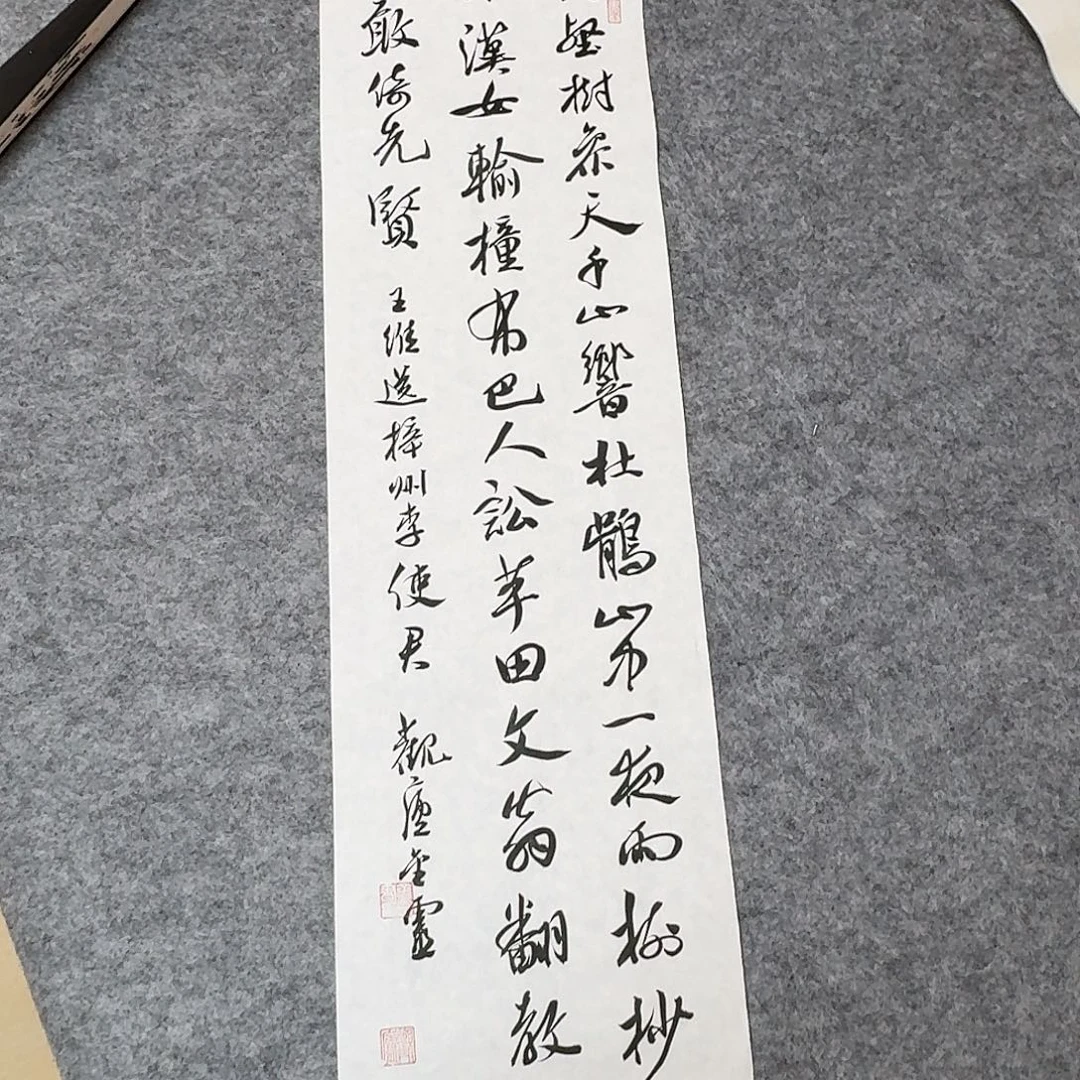 壑樹參天千山響杜鵑山中一夜雨樹杪
漢女輸橦布巴人訟芋田文翁翻教
敢倚先賢 王維送梓州李使君 觀廬金靈